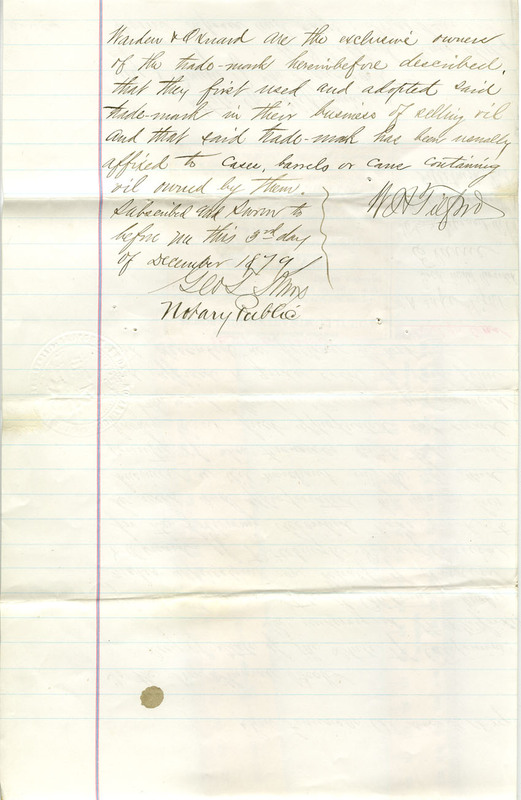 Warden & Oxnard are the exclusive owners
of the trade-mark hereinbefore described.
that they first used and adopted said
trade-mark in their business of selling oil
and that said trade-mark has been usually
affixed to cases, barrels or cans containing
oil owned by them.
W. H. Tilford
Subscribed and Sworn to
before me this 3rd day
of December 1879
Geo L
Notary Public